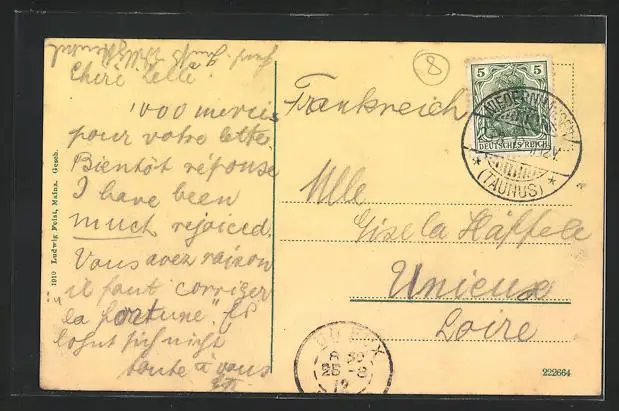 Chère Zelle!
1000 mercis
pour votre lettre.
Bientôt réponse
I have been
much rejoiced.
Vous avez raison
"il faut corriger
la fortune" Es
lohnt sich nicht
toute à vous
1910 Ludwig Feist, Mainz. Gesch.
8
5 5
DEUTSCHES REICH
(TAUNUS)
Frankreich
Mlle
Gisela Häffele
Unieux
Loire
UNIEUX
8 30
25 -8
12
222664